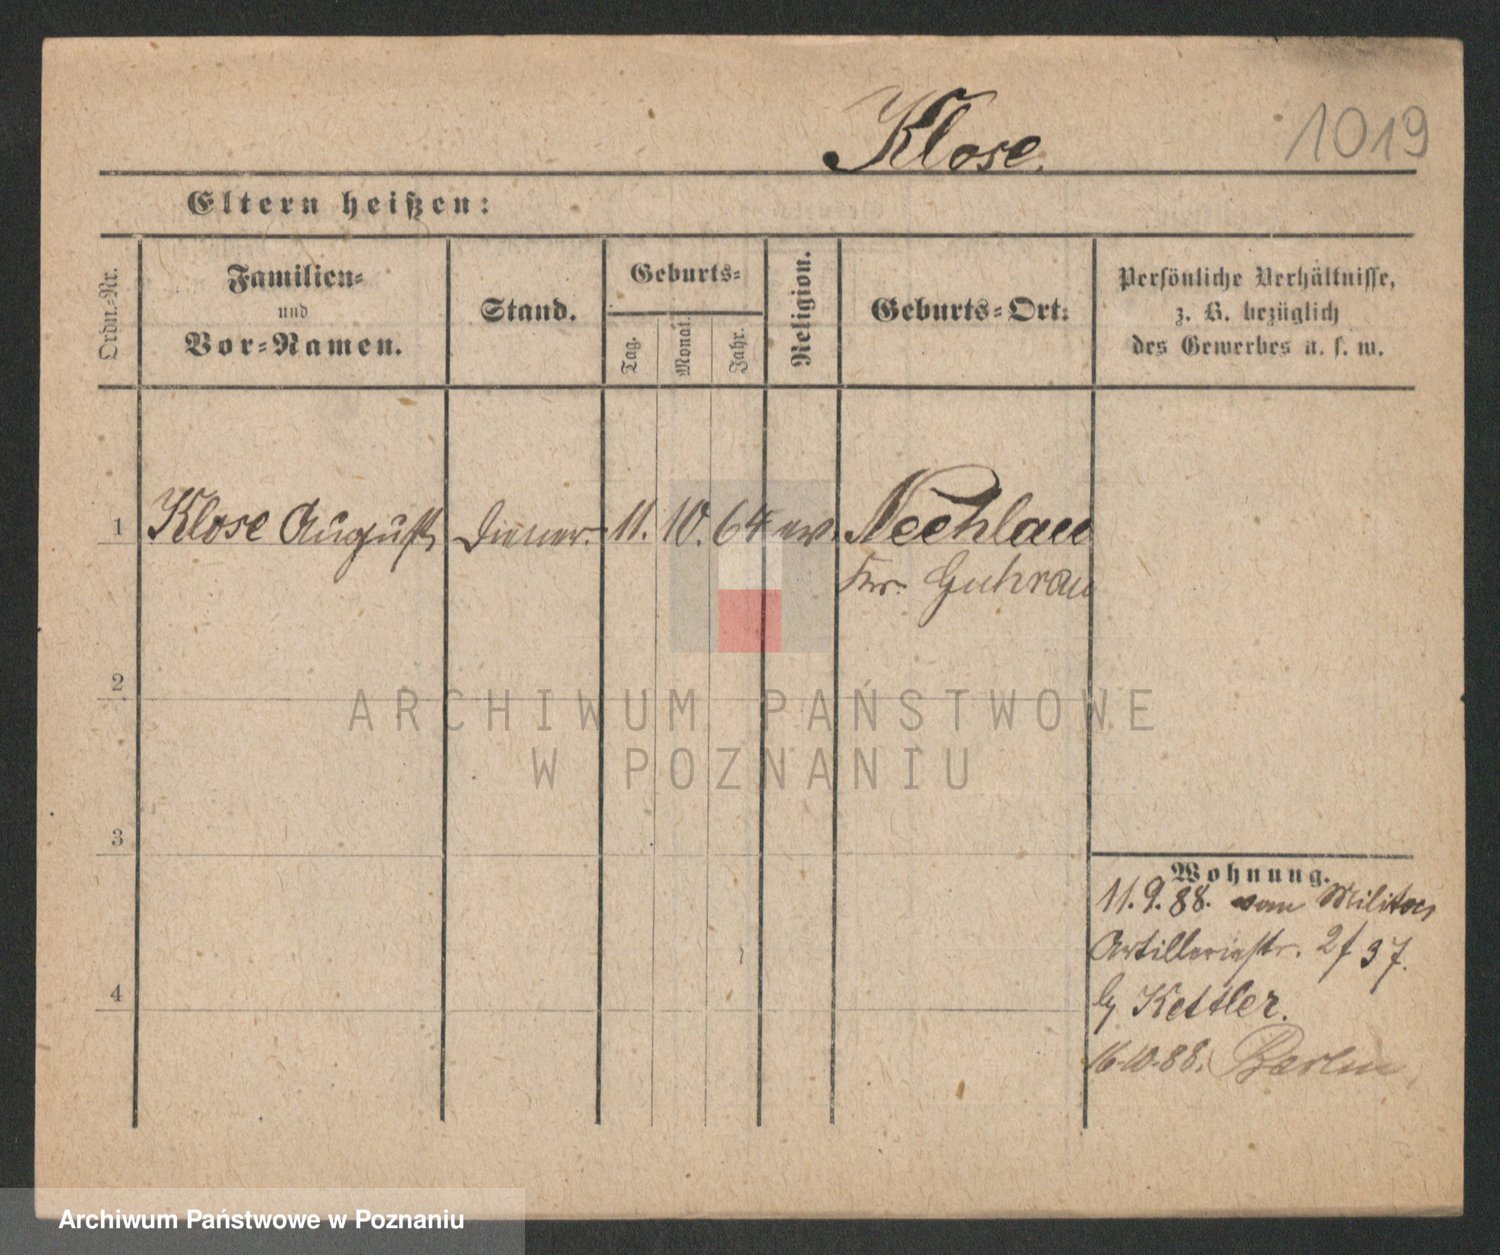 Klose.
1019
Eltern heißen:
Ordn.-Nr.
Familien-
und
Vor-Namen.
Stand.
Geburts-
Tag.
Monat.
Jahr.
Religion.
Geburts-Ort:
Persönliche Verhältnisse,
z. B. bezüglich
des Gewerbes u. s. w.
1 Klose August Diener 11. 10. 64 ev. Nechlau
Kr. Guhrau
2
3
4
Wohnung.
11. 9. 88. vom Militär
Artilleriestr.
b/ Kettler.
16.10.88. Berlin
ARCHIWUM PAŃSTWOWE
W POZNANIU
Archiwum Państwowe w Poznaniu